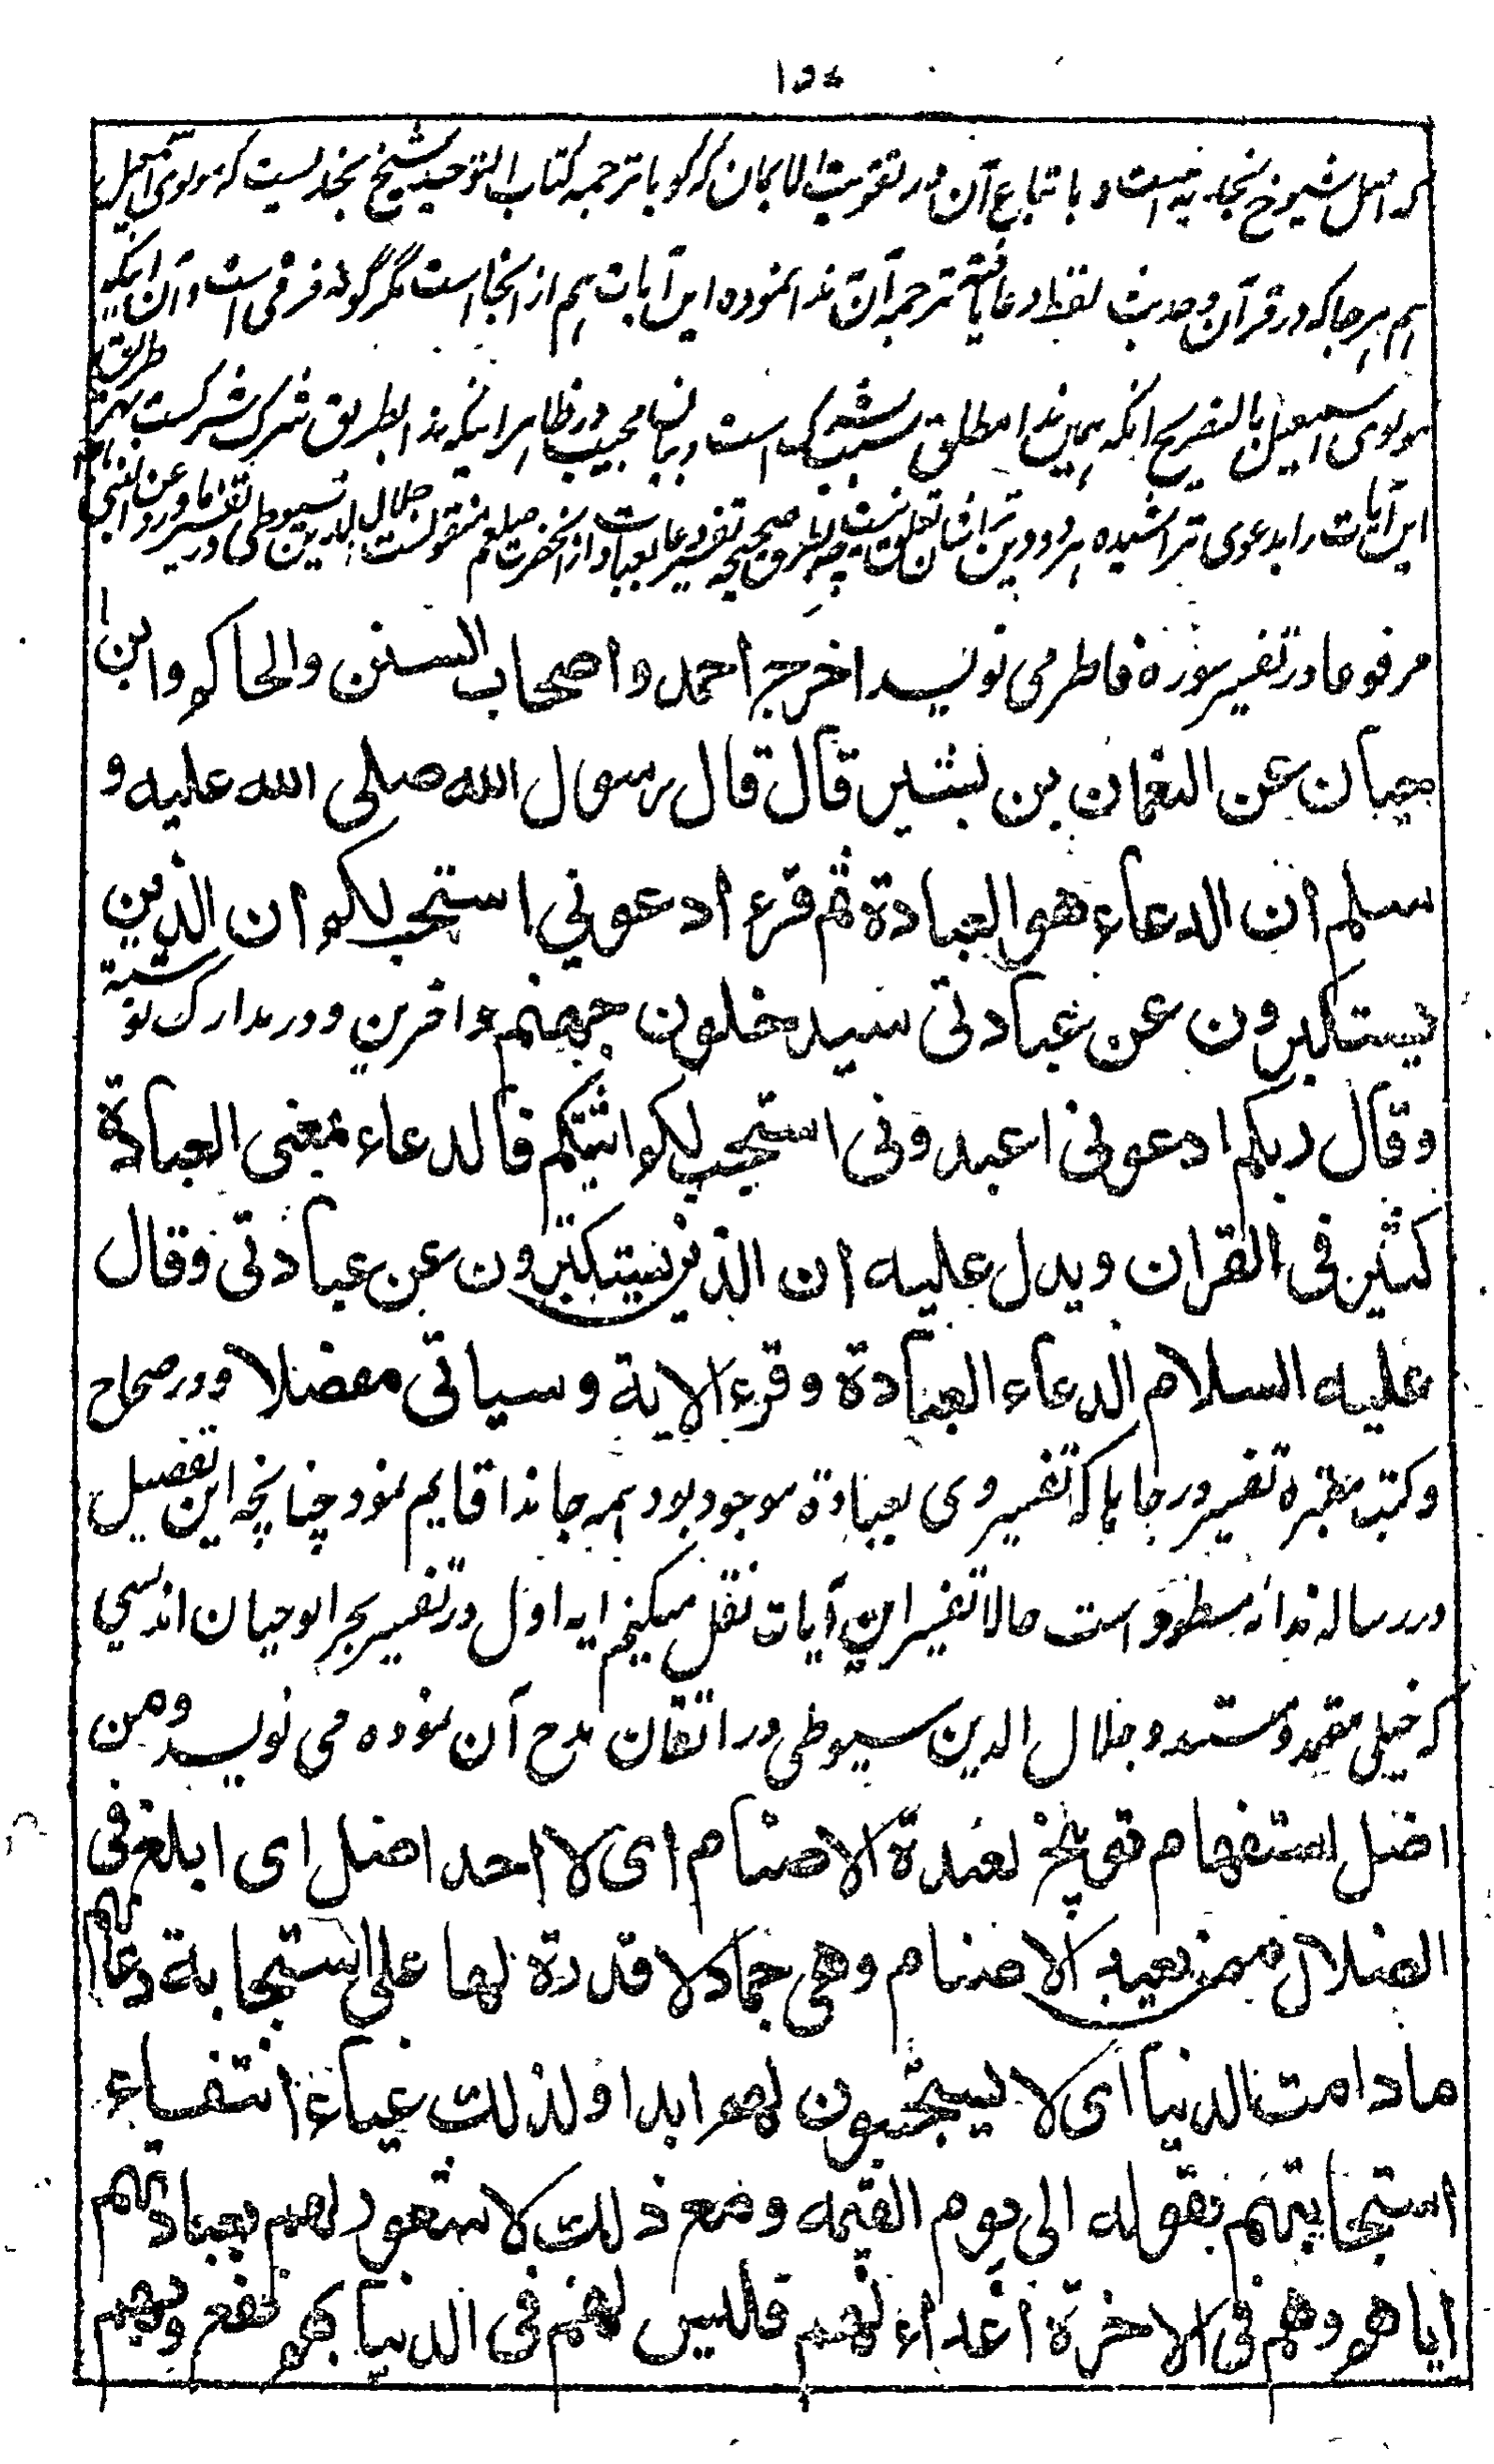 که اصل شیوخ نجدیه است و باتباع آن در تقویت الایمان که گویا ترجمه کتاب التوحید شیخ نجدیست که مولوی اسمعیل
هم هرجا که در قرآن و حدیث لفظ دعا یافته ترجمه آن ندا نموده این آیات هم از انجا است مگر گونه فرقی است و آن اینکه
مولوی اسمعیل بالتصریح انکه همین ندا مطلق سبب شرک است و بنا مجیب در ظاهر اینکه ندا بطریق شرک شرکست بهر طریق
این آیات را بدعوی تراشیده هر دو دین ایشان تعلق نیست چه بطرق صحیحه تفسیر دعا بعبادت از آنحضرت صلعم منقولست جلال الدین سیوطی در تفسیر ما ورد عن النبی
مرفوعا در تفسیر سورة فاطر می نویسد اخرج احمد واصحاب السنن والحاکم وابن
حبان عن النعمان بن بشیر قال قال رسول الله صلی الله علیه و
سلم ان الدعاء هو العبادة ثم قرء ادعونی استجب لکم ان الذین
یستکبرون عن عبادتی سیدخلون جهنم داخرین و در مدارک نوشته
وقال ربکم ادعونی اعبدونی استجیب لکم اثبتکم فالدعاء بمعنی العبادة
کثیر فی القران ویدل علیه ان الذین یستکبرون عن عبادتی وقال
علیه السلام الدعاء العبادة وقرء الایة وسیاتی مفصلا و در صحاح
و کتب معتبره تفسیر در جاها که تفسیر وی بعبادة موجود بود همه جا ندا قایم نمود چنانچه این تفصیل
در رساله ندائه مسطور است حالا تفسیر این آیات نقل میکنیم ایه اول در تفسیر بحر ابو حیان اندلسی
که خیلی معتمد و مستند و جلال الدین سیوطی در اتقان مدح آن نموده می نویسد ومن
اضل استفهام توبیخ لعبدة الاصنام ای لا احد اضل ای ابلغ فی
الضلال ممن یعبد الاصنام وهی جماد لا قدرة لها علی استجابة دعائهم
مادامت الدنیا ای لا یستجیبون لهم ابدا ولذلک غیاء انتفاء
استجابتهم بقوله الی یوم القیمه ومع ذلک لا شعور لهم بعبادتهم
ایاهم وهم فی الاخرة اعداء لهم فلیس لهم فی الدنیا بهم نفع وهم